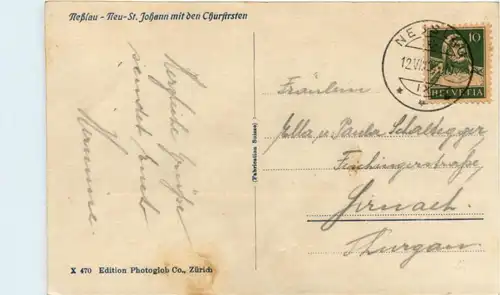 Neßlau - Neu-St. Johann mit den Churfirsten
Herzliche Grüße
sendet Euch
Hermine.
X 470 Edition Photoglob Co., Zürich
(Fabrication Suisse)
NESSLAU
12.VI.
10
HELVETIA
Fräulein
Ella u Paula Schaltegger
Fischingerstraße
Sirnach.
Thurgau.